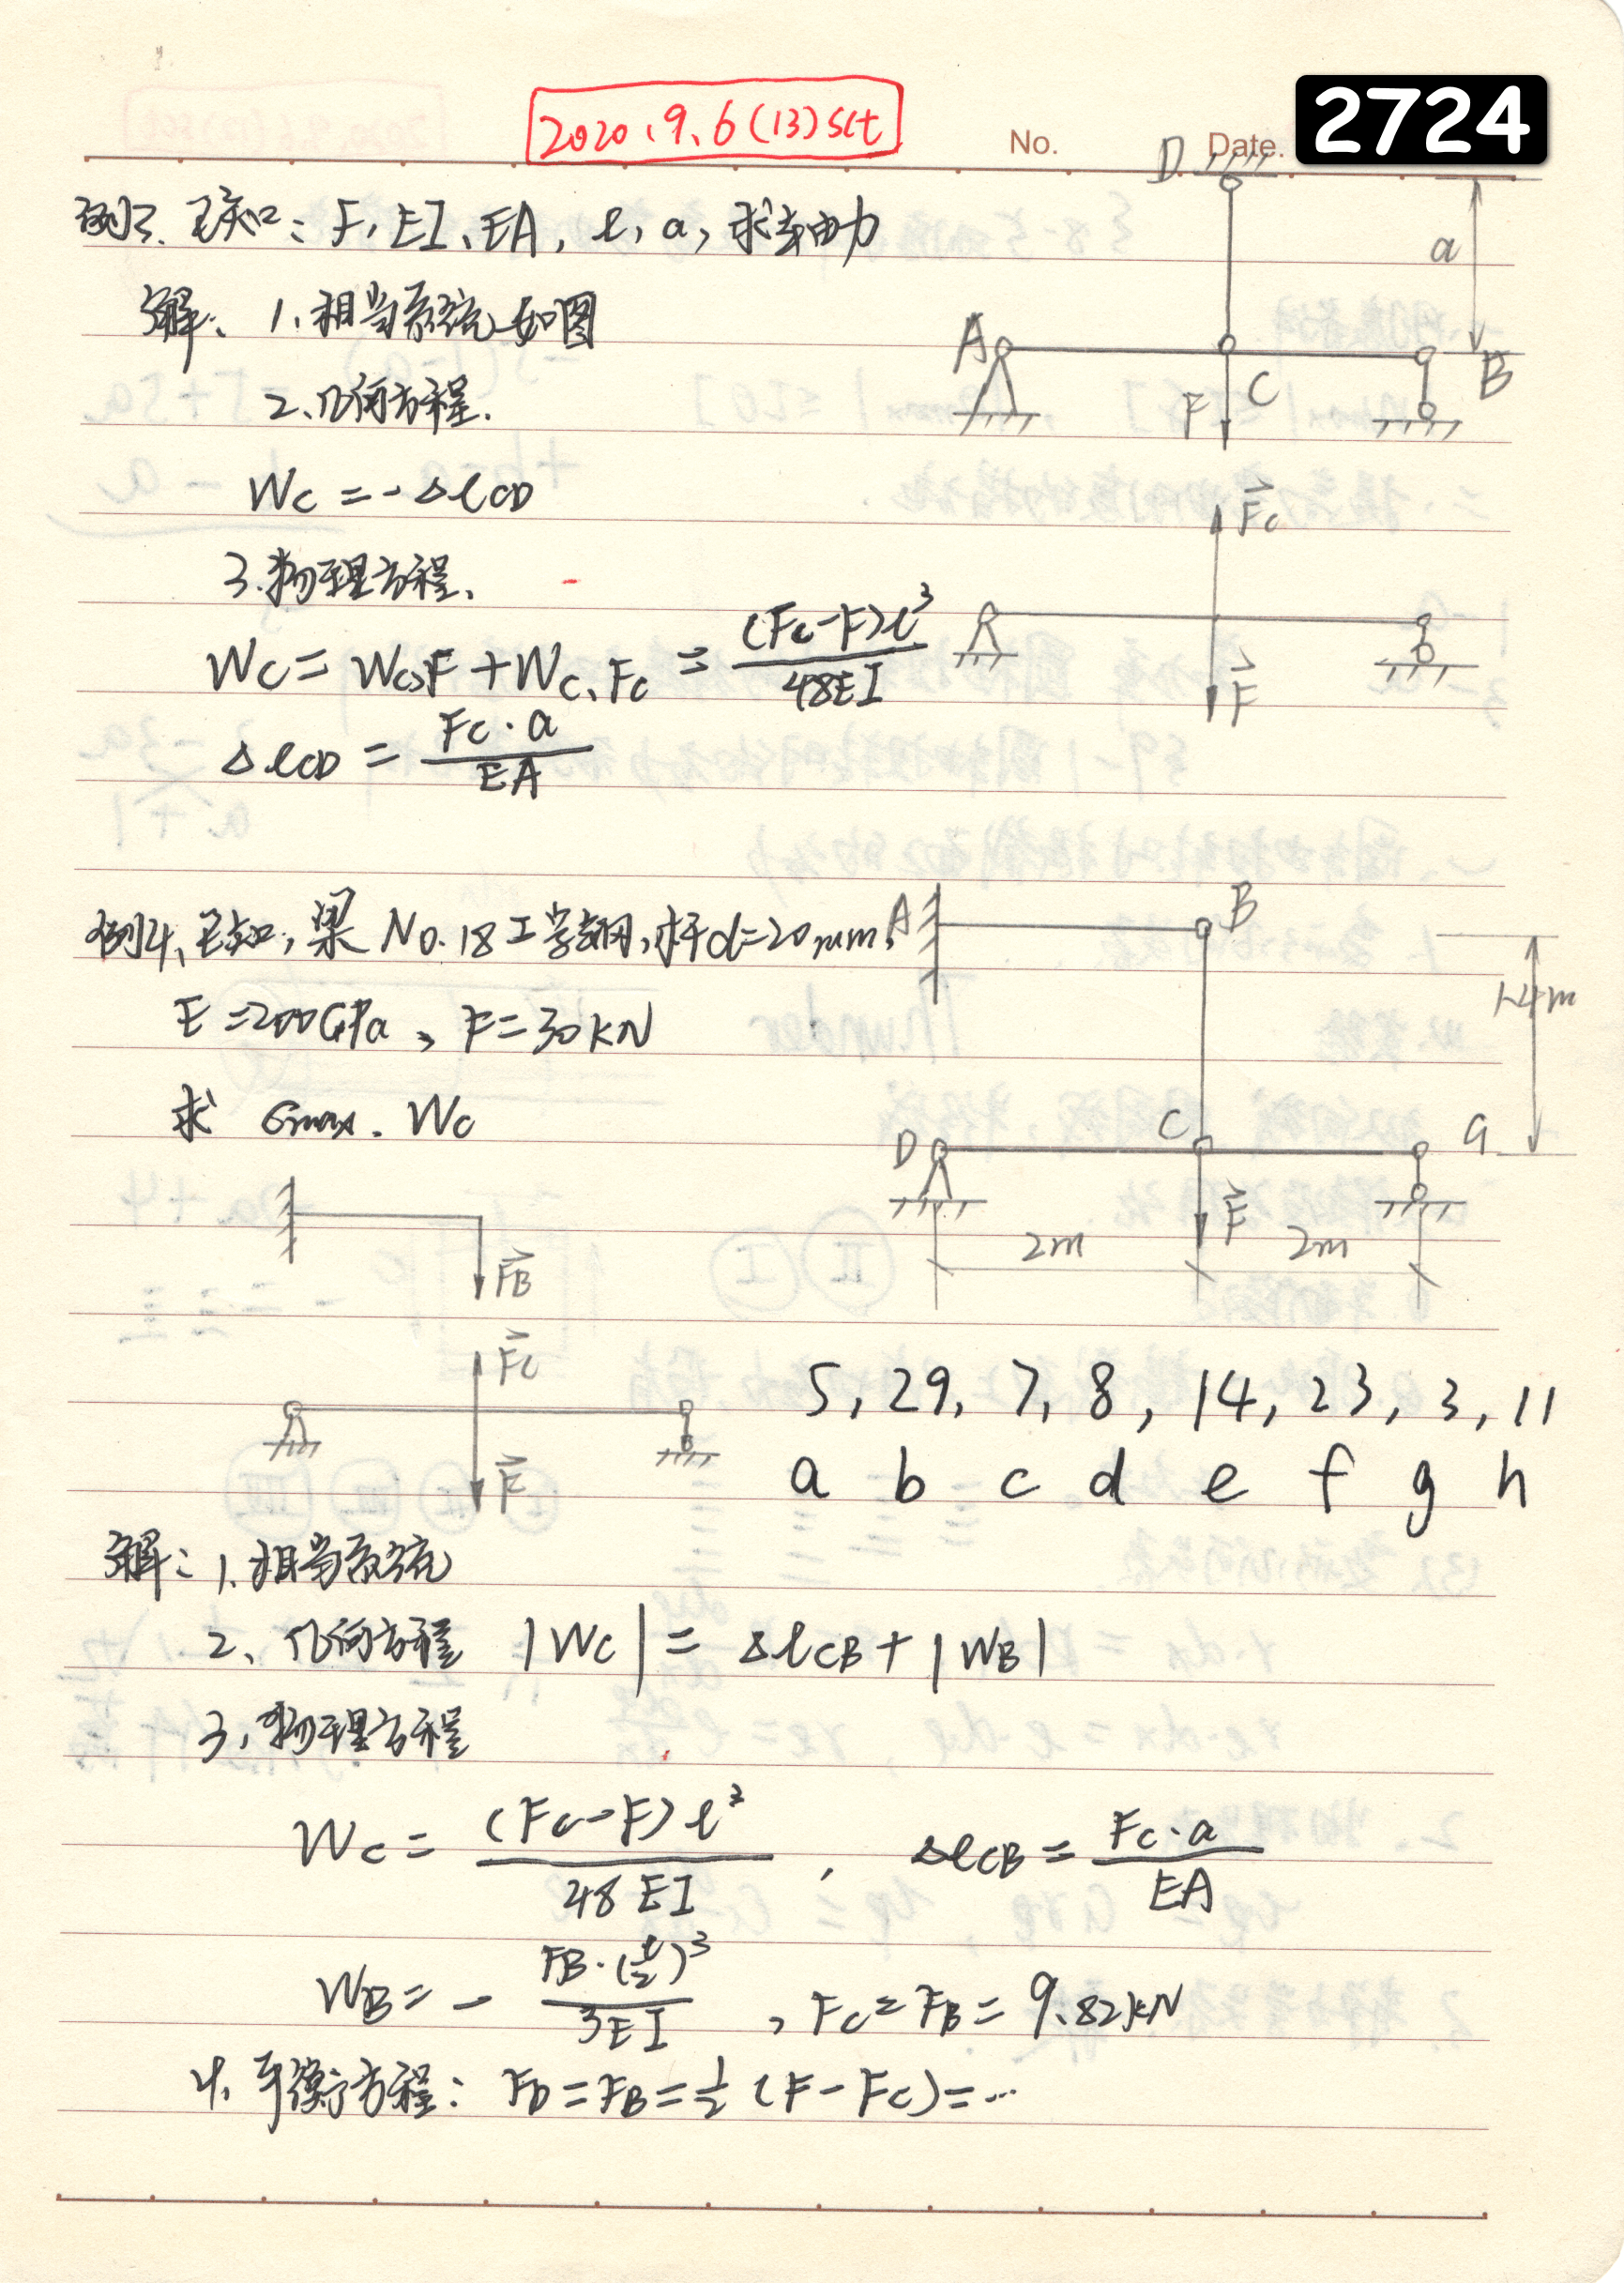 2020.9.6(13)sct
No. Date. 2724
例3. 已知: F, EI, EA, l, a, 求轴力
解: 1. 相当系统如图
2. 几何方程.
Wc = -ΔlCD
3. 物理方程.
Wc = Wc,F + Wc,Fc = (Fc-F)l³/48EI
ΔlCD = Fc·a/EA
D
a
A
C
B
F
Fc
F
例4. 已知, 梁 No.18工字钢, 杆d=20mm,
E=200GPa, F=30kN
求 σmax. Wc
A
B
1.4m
D
C
G
F
2m 2m
FB
Fc
F
5, 29, 7, 8, 14, 23, 3, 11
a b c d e f g h
解: 1. 相当系统
2. 几何方程 |Wc| = ΔlCB + |WB|
3. 物理方程
Wc = (Fc-F)l³/48EI , ΔlCB = Fc·a/EA
WB = - FB·(l/2)³/3EI , Fc = FB = 9.82kN
4. 平衡方程: FD = FB = ½(F-Fc) = …